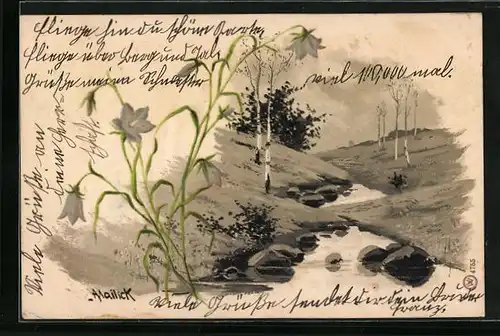 Fliege hin du schöne Karte,
fliege über Berg und Tal,
Grüße meine Schwester
viel 100,000 mal.
Viele Grüße an
deine Herr-
schaft.
Viele Grüße sendet dir dein Bruder
Franz.
A. Mailick
4755